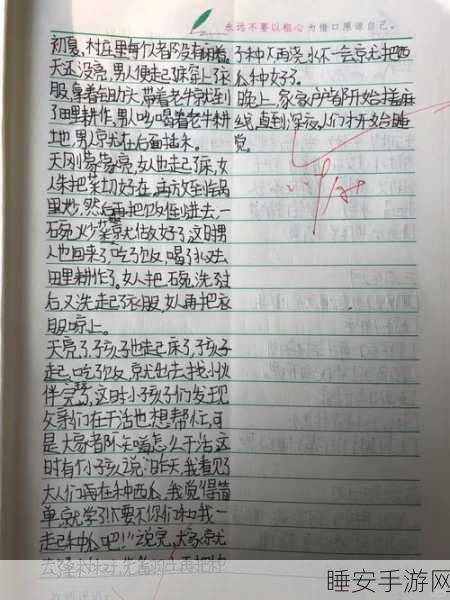 永远不要以粗心为借口原谅自己。
初夏,村庄里每个人都没有闲着。
天还没亮,男人便起床穿上了衣
服,拿着锄头,带着老牛就到
了田里耕作,男人吆喝着老牛耕
地,男人就在后面插禾。
天刚蒙蒙亮,女人也走起了床,女
人先把菜切好在,再放在锅
里炒,然后再把饭倒进去,一
碗炒菜就做好了,这时男
人也回来了,吃了饭喝了汉又去
田里耕作了。女人把石宛洗过
后又洗走起了衣服,女人再把衣
服晾上。
天亮了,孩子也走起床了,孩子
起,吃了饭就出去找小伙
伴完了,这时小孩子们发现
父亲们在干活也想帮忙,可
是大家都不知道怎么干活这
时有小孩说“昨天我看见了
大人们再在种西瓜,我觉得简
单就学了!不要天你们和我一
走种瓜吧!”说完,大家就
去 先 土再把种
子种下再浇水不一会就把西
瓜种好了。
晚上,家家户户都开始搓麻
线,直到深夜人们才开始睡
觉。
睡安手游网